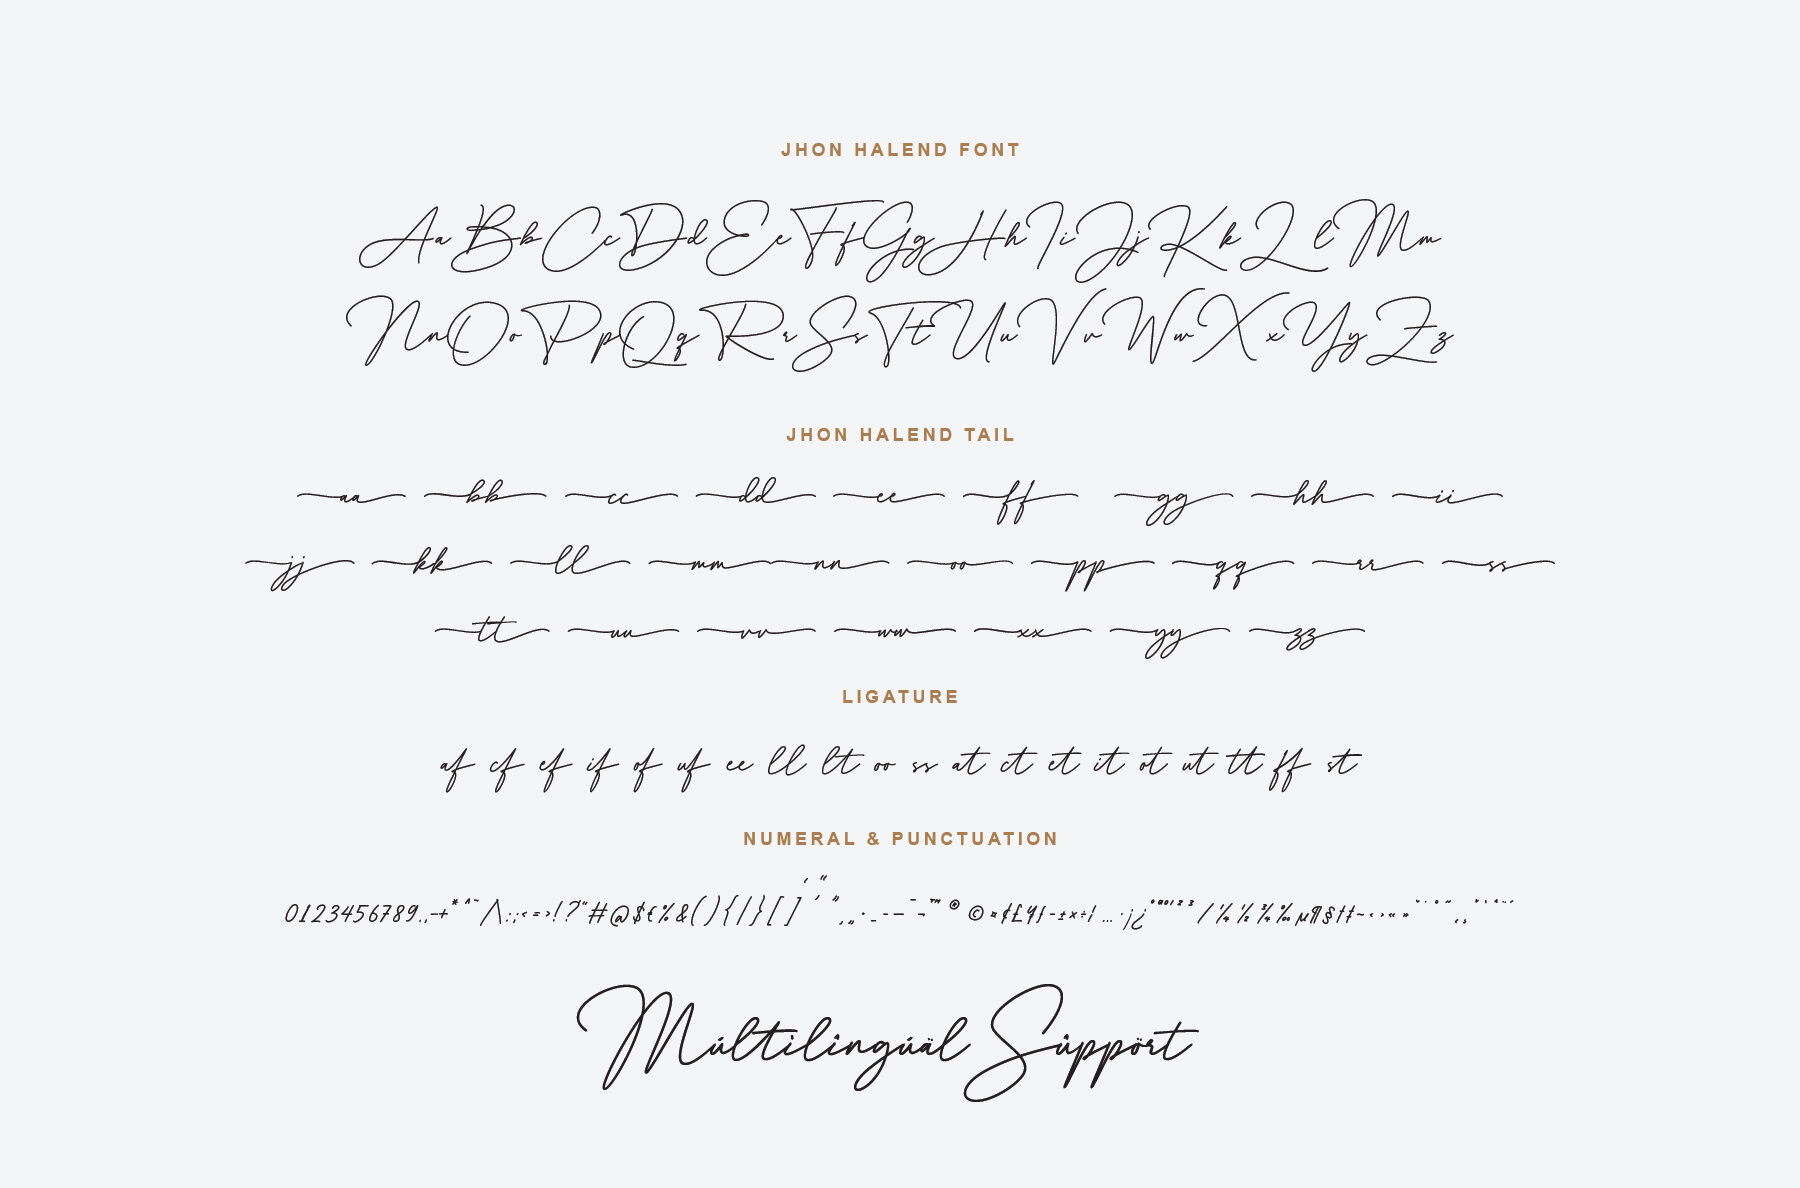 JHON HALEND FONT
Aa Bb Cc Dd Ee Ff Gg Hh Ii Jj Kk Ll Mm
Nn Oo Pp Qq Rr Ss Tt Uu Vv Ww Xx Yy Zz
JHON HALEND TAIL
aa bb cc dd ee ff gg hh ii
jj kk ll mm nn oo pp qq rr ss
tt uu vv ww xx yy zz
LIGATURE
af cf ef if of uf ee ll lt oo ss at ct et it ot ut tt ff st
NUMERAL & PUNCTUATION
0123456789.,-+*^~/\:;<=>!?"#@$€%&(){/}[]‘“’”‚„·_-—¯¬™®©¤¢£¥ƒ-±×÷¦…·¡¿°ªº¹²³/¼½¾‰µ¶§†‡~‹›«»
Múltilîngúäl Sûppört